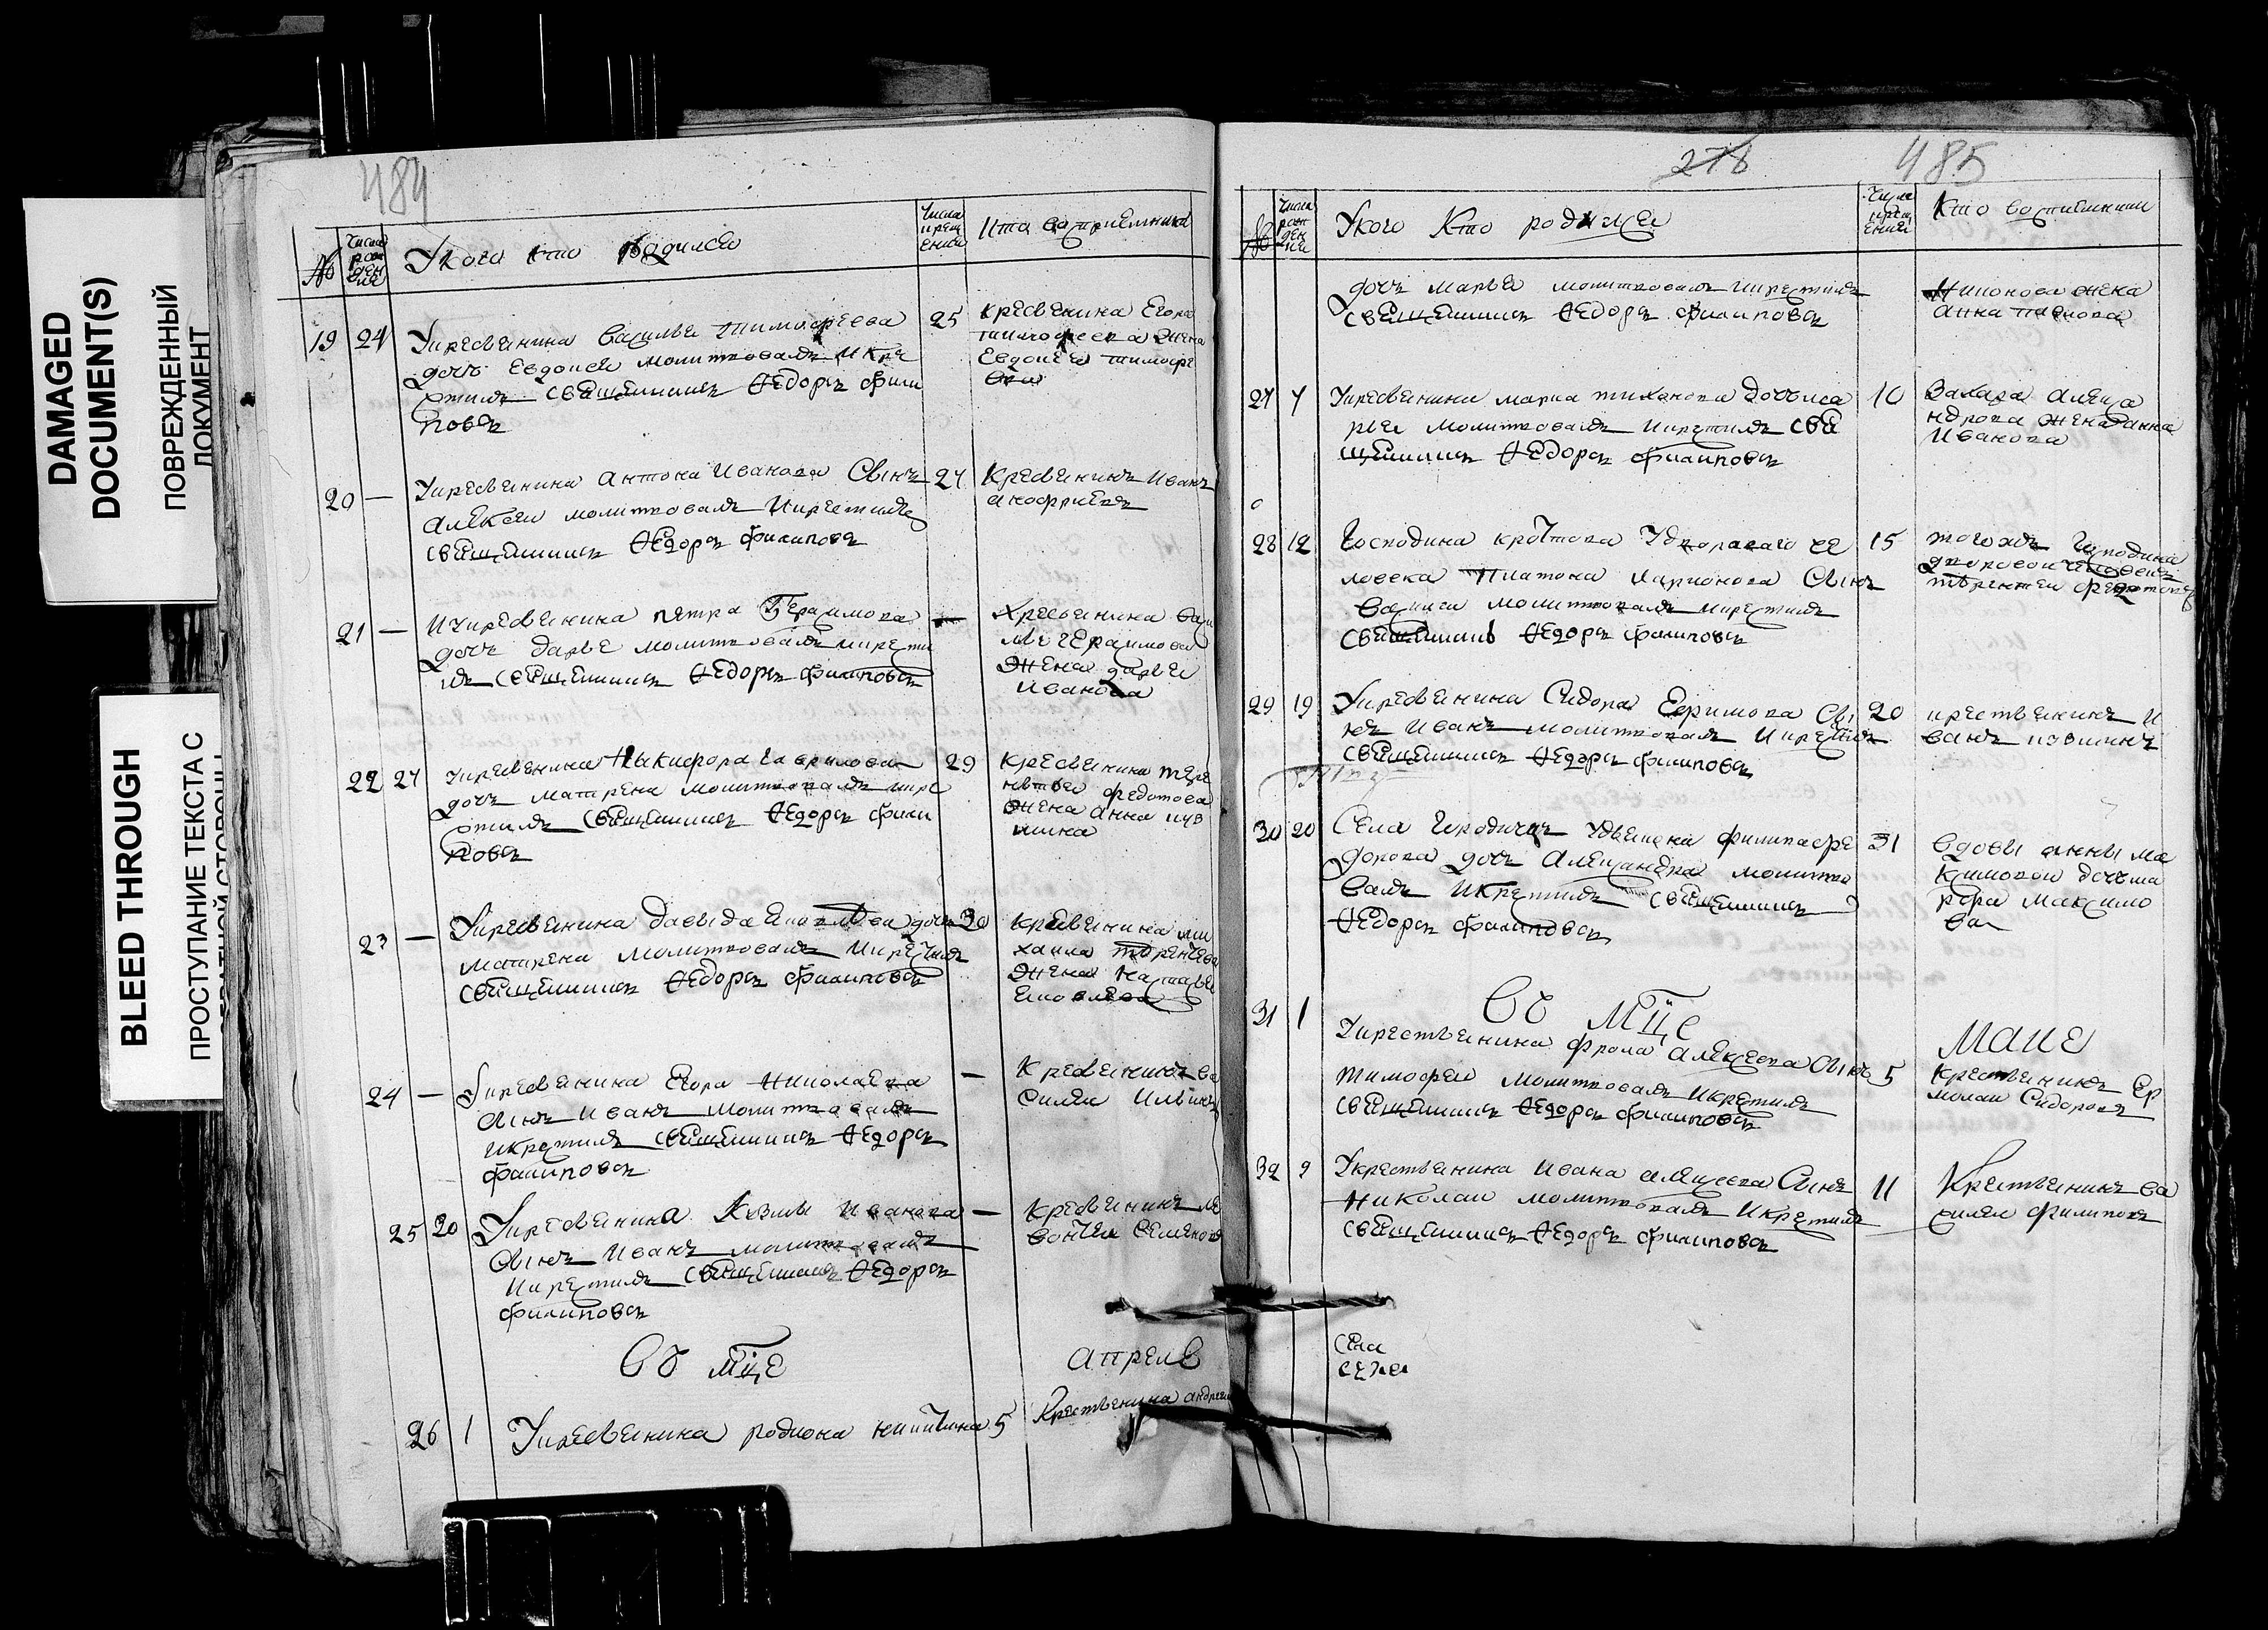 DAMAGED
DOCUMENT(S)
ПОВРЕЖДЕННЫЙ
ДОКУМЕНТ
BLEED THROUGH
ПРОСТУПАНИЕ ТЕКСТА С
ОБРАТНОЙ СТОРОНЫ
484
№
Числа рождение
У кого кто родилсо
Числа крещение
Кто восприемника
19 24
Укресвенина Василье Тимофеева
дочь Евдокея молитвовалъ икре
стилъ свещенникъ Ѳедоръ фили
повъ
25
кресвенина Егора
тимофеева жена
Евдокея тимофе
ева
20 —
Укресвенина антона Иванова Сынъ
алексеи молитвовалъ Икрестилъ
свещенникъ Ѳедоръ филиповъ
27
Кресвенинъ Иванъ
анофриевъ
21 —
Укресвенина петра Герасимова
дочь дарье молитвовалъ икрести
лъ свещенникъ Ѳедоръ филиповъ
—
кресвенина васи
лья герасимова
жена дарья
иванова
22 27
укресвенина Никифора Гаврилова
дочь матрена молитвовалъ икре
стилъ свещенникъ Ѳедоръ фили
повъ
29
кресвенина тере
нтья федотова
жена анна куз
мина
23 —
Укресвенина давыда Яковлева дочь
матрена молитвовалъ Икрестилъ
свещенникъ Ѳедоръ филиповъ
30
кресвенина ми
хаила терентева
жена Наталья
Яковлева
24 —
Укресвенина Егора Николаева
Сынъ Иванъ молитвовалъ
икрестилъ свещенникъ Ѳедоръ
филиповъ
—
Кресвенинъ ва
силеи Ильинъ
25 20
Укресвенина Козмы Иванова
Сынъ Иванъ молитвовалъ
Икрестилъ свещенникъ Ѳедоръ
филиповъ
—
Кресвенинъ ле
вонтеи Семенов
Въ мце
апреле
26 1
Укресвенина родиона никитина
5
Крественина андрея
278 485
№
Числа рождение
У кого Кто родилсе
Числа крещение
Кто восприемники
дочь марье молитвовалъ икрестилъ
свещенникъ Ѳедоръ филиповъ
жена
анна павлова
27 7
Укресвенина марка тиханова дочь ма
рье молитвовалъ икрестилъ све
щенникъ Ѳедоръ филиповъ
10
Захара алекса
ндрова жена анна
Иванова
28 12
Господина кроткова Удвороваго че
ловека Платона Ларионова Сынъ
васили молитвовалъ икрестилъ
свещенникъ Ѳедоръ филиповъ
15
тогожъ Господина
дворовои человекъ
терентеи федотовъ
29 19
Укресвенина Сидора Ефимова Сы
нъ Иванъ молитвовалъ Икрестилъ
свещенникъ Ѳедоръ филиповъ
20
крественинъ И
ванъ кузминъ
30 20
Села Удьячка филипа фе
дорова дочь Александра молитво
валъ Икрестилъ свещенникъ
Ѳедоръ филиповъ
31
вдовы анны ма
ксимовои дочь ма
рфа максимо
ва
Въ мце
маие
31 1
Укрественина фрола алексеева Сынъ
тимофеи молитвовалъ Икрестилъ
свещенникъ Ѳедоръ филиповъ
5
Крественинъ Ер
молаи Сидоровъ
32 9
Укрественина Ивана алексеева Сынъ
Николаи молитвовалъ Икрестилъ
свещенникъ Ѳедоръ филиповъ
11
Крественинъ ва
силеи филиповъ
Села